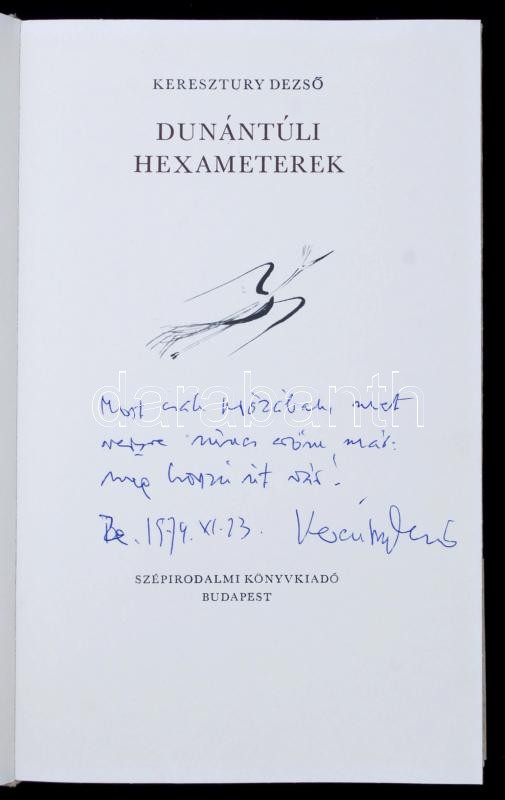 KERESZTURY DEZSŐ
DUNÁNTÚLI
HEXAMETEREK
Most csak prózában, mert
versre nincs erőm már:
még hosszú út vár!
1974. XI. 23. Keresztury Dezső
darabanth
SZÉPIRODALMI KÖNYVKIADÓ
BUDAPEST